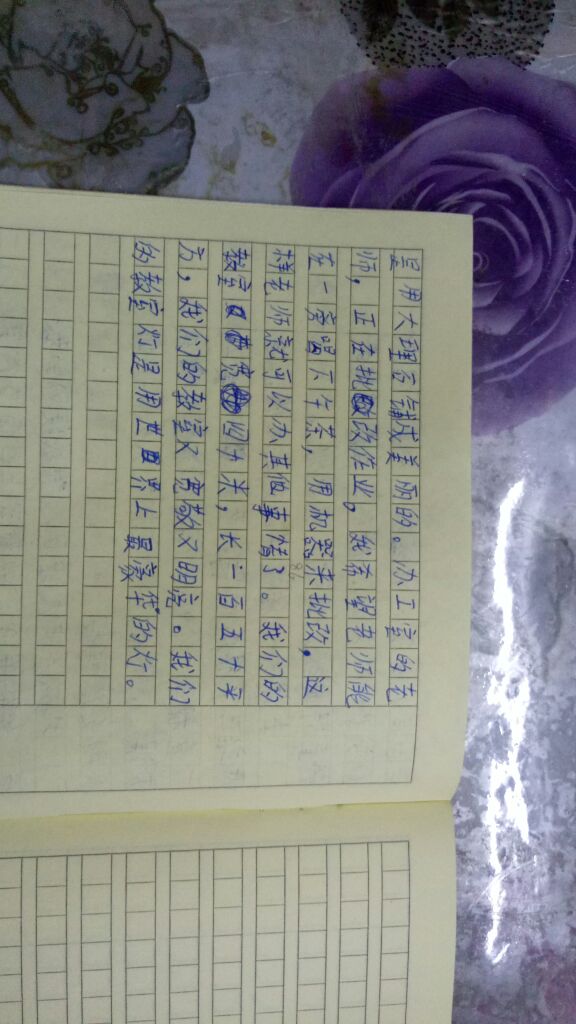 是用大理石铺成美丽的。办工室的老
师，正在批改作业，我希望老师能
在一旁喝下午茶，用机器来批改。这
样老师就可以办其他事情了。我们的
教室宽四十米，长一百五十平
方，我们的教室又宽敞又明亮。我们
的教室灯是用世界上最豪华的灯。
86